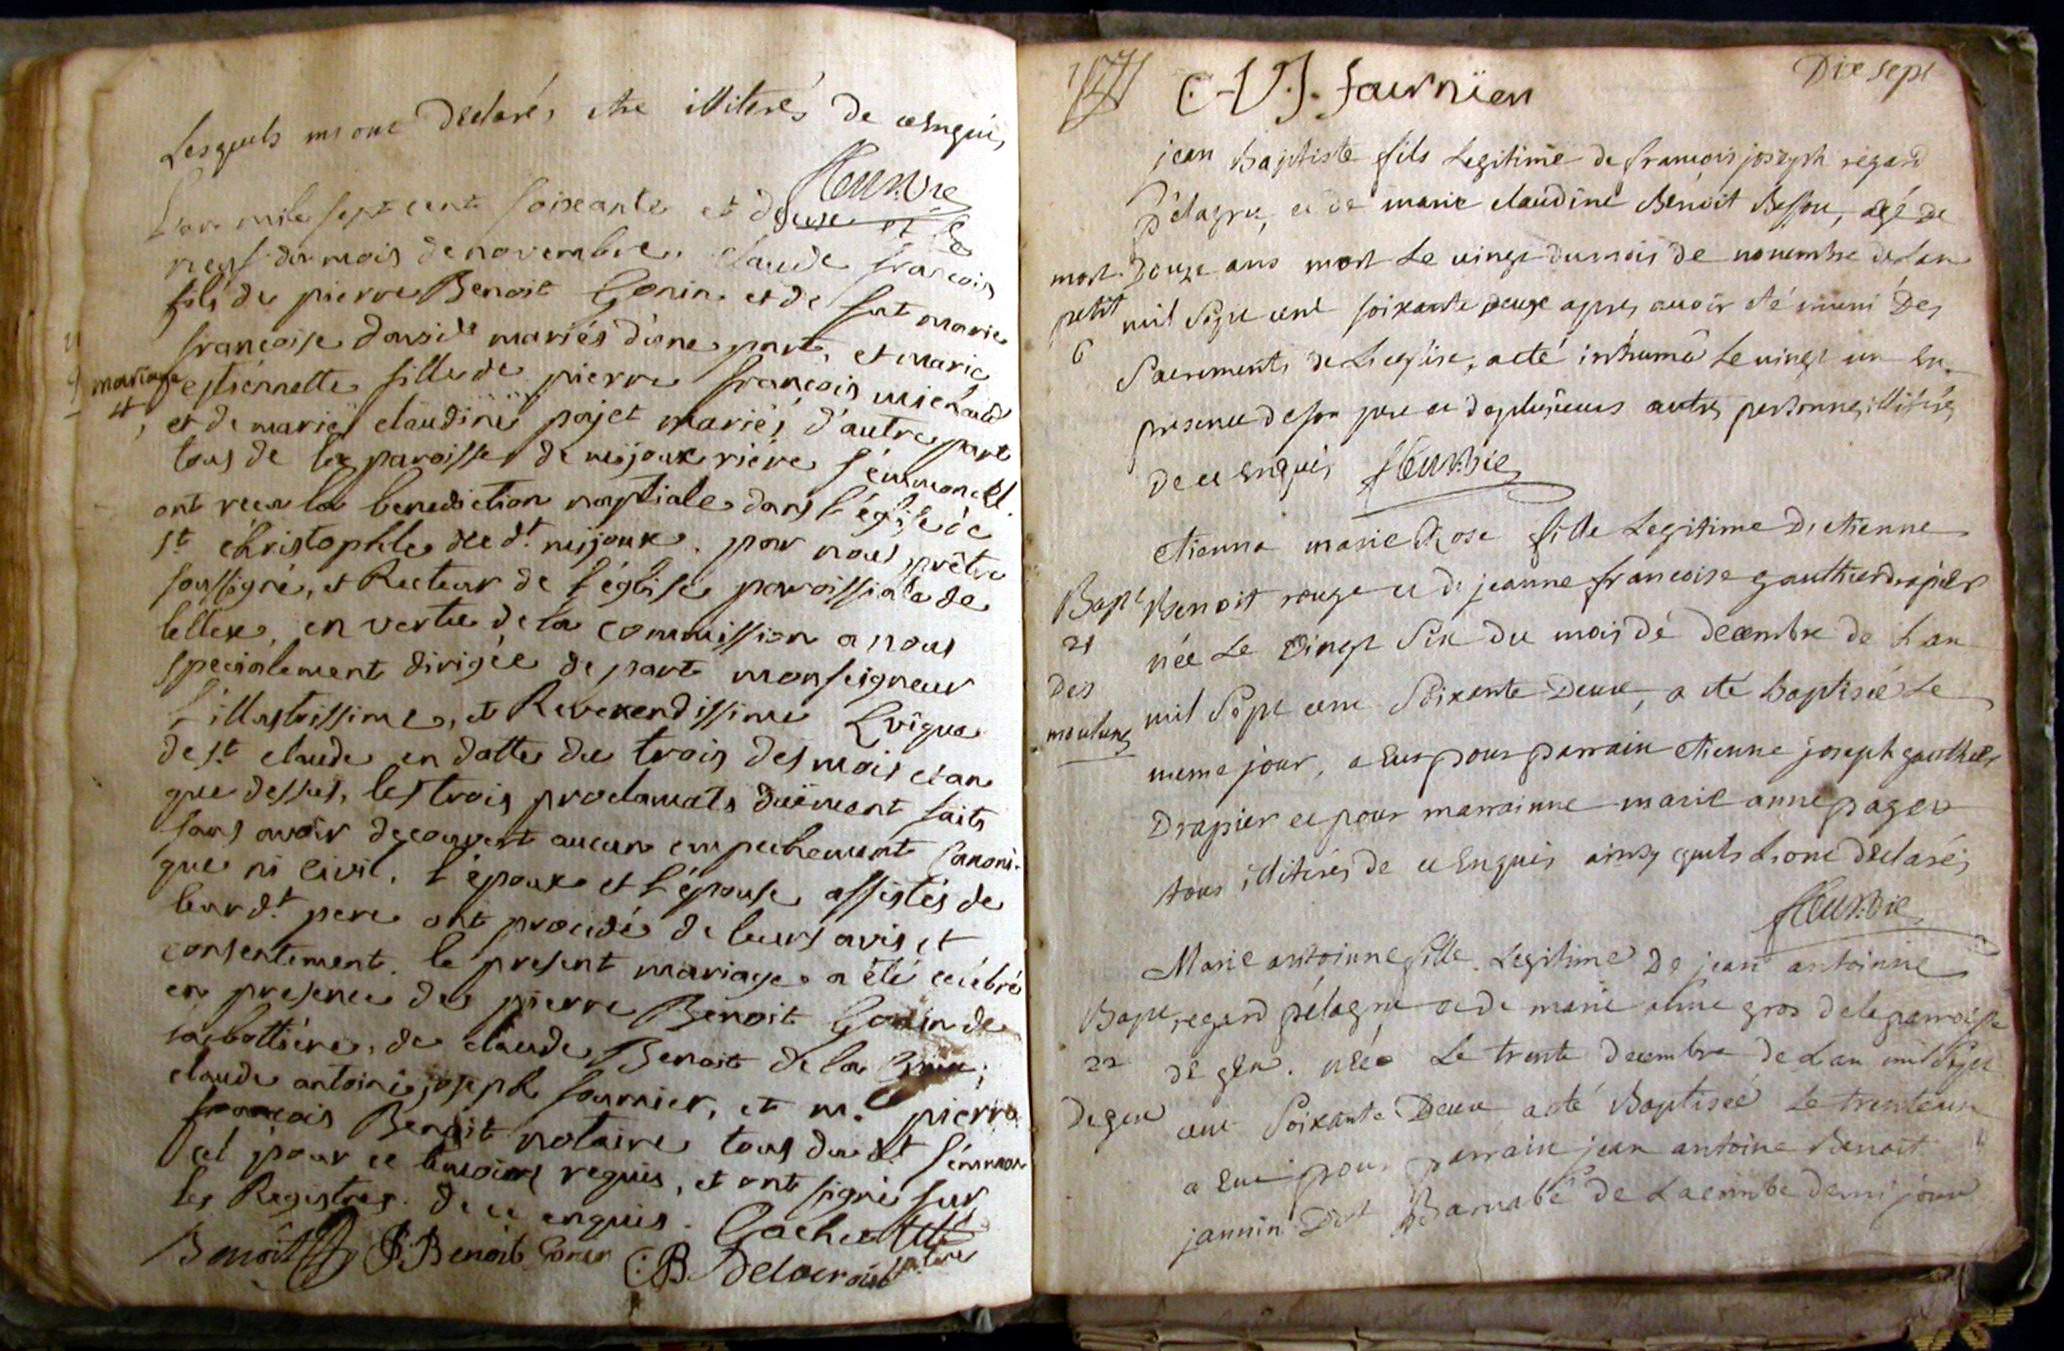 Lesquels m'ont declarés etre illiterés de ce enquis
fleurdie
L'an mile sept cent soixante et deux et le
neuf du mois de novembre. claude françois
fils de pierre Benoit Gonin et de fut marie
françoise mariés d'une part, et marie
mariage
4
estiennette fille de pierre françois
et de marie claudine pajet mariés d'autre part
tous de la paroisse de mijoux riére semmoncel.
ont recu la benediction nuptiale dans l'église de
st christophle du dt mijoux. par nous prêtre
soussigné, et Recteur de l'église paroissiale de
lellex, en vertu de la commission a nous
specialement dirigée de part monseigneur
l'illustrissime, et Reverendissime Evique
de st claude en datte du trois des mois et an
que dessus, les trois proclamats duëment faits
sans avoir decouvert aucun empechement canoni-
que ni civil. l'époux et l'épouse assistés de
leur dt pere ont procédé de leurs avis et
consentement. le present mariage a été celébré
en presence de pierre Benoit Gonin de
la bottiére, de claude Benoit de la
claude antoine joseph fournier, et m.e pierre
françois Benoit notaire tous du dt semmon
cel pour ce temoins requis, et ont signé sur
les Registres. de ce enquis. Gachet
Benoit P: Benoit Gonin C: B. Delacroix
C-V.J. fournier
Dix sept
jean Baptiste fils Legitime de francois joseph regard
Pélagru, et de marie claudine Benoit Besson, agé de
mort
petit
6
Douze ans mort Le vingt du mois de novembre de Lan
mil Sept cent soixante deux apres avoir eté muni Des
Sacrements de L'eglise, a eté inhumé Le vingt un En
presence de son pere et de plusieurs autres personnes illiterés
de ce enquis fleurdie
etienna marie Rose fille Legitime D'etienne
Bapt
21
des
moulunes
Benoit rouge et de jeanne francoise gauthier drapier
née Le vingt Six du mois de decembre de L'an
mil Sept cent Soixante Deux, a eté baptisée Le
meme jour, a Eu pour parrain etienne joseph gauthier
Drapier et pour marrainne marie anne paget
tous illiterés de ce Enquis ainsy quils L'ont declarés
fleurdie
Marie antoinne fille Legitime De jean antoinne
Bapt
22
de gex
regard pélagru et de marie aime gros de la parroisse
de gex. née Le trente decembre de Lan mil Sept
cent Soixante Deux a eté Baptisée Le trenteun
a Eu pour parrain jean antoine Benoit
jannin Dit Barnabé de Lacombe demi jour